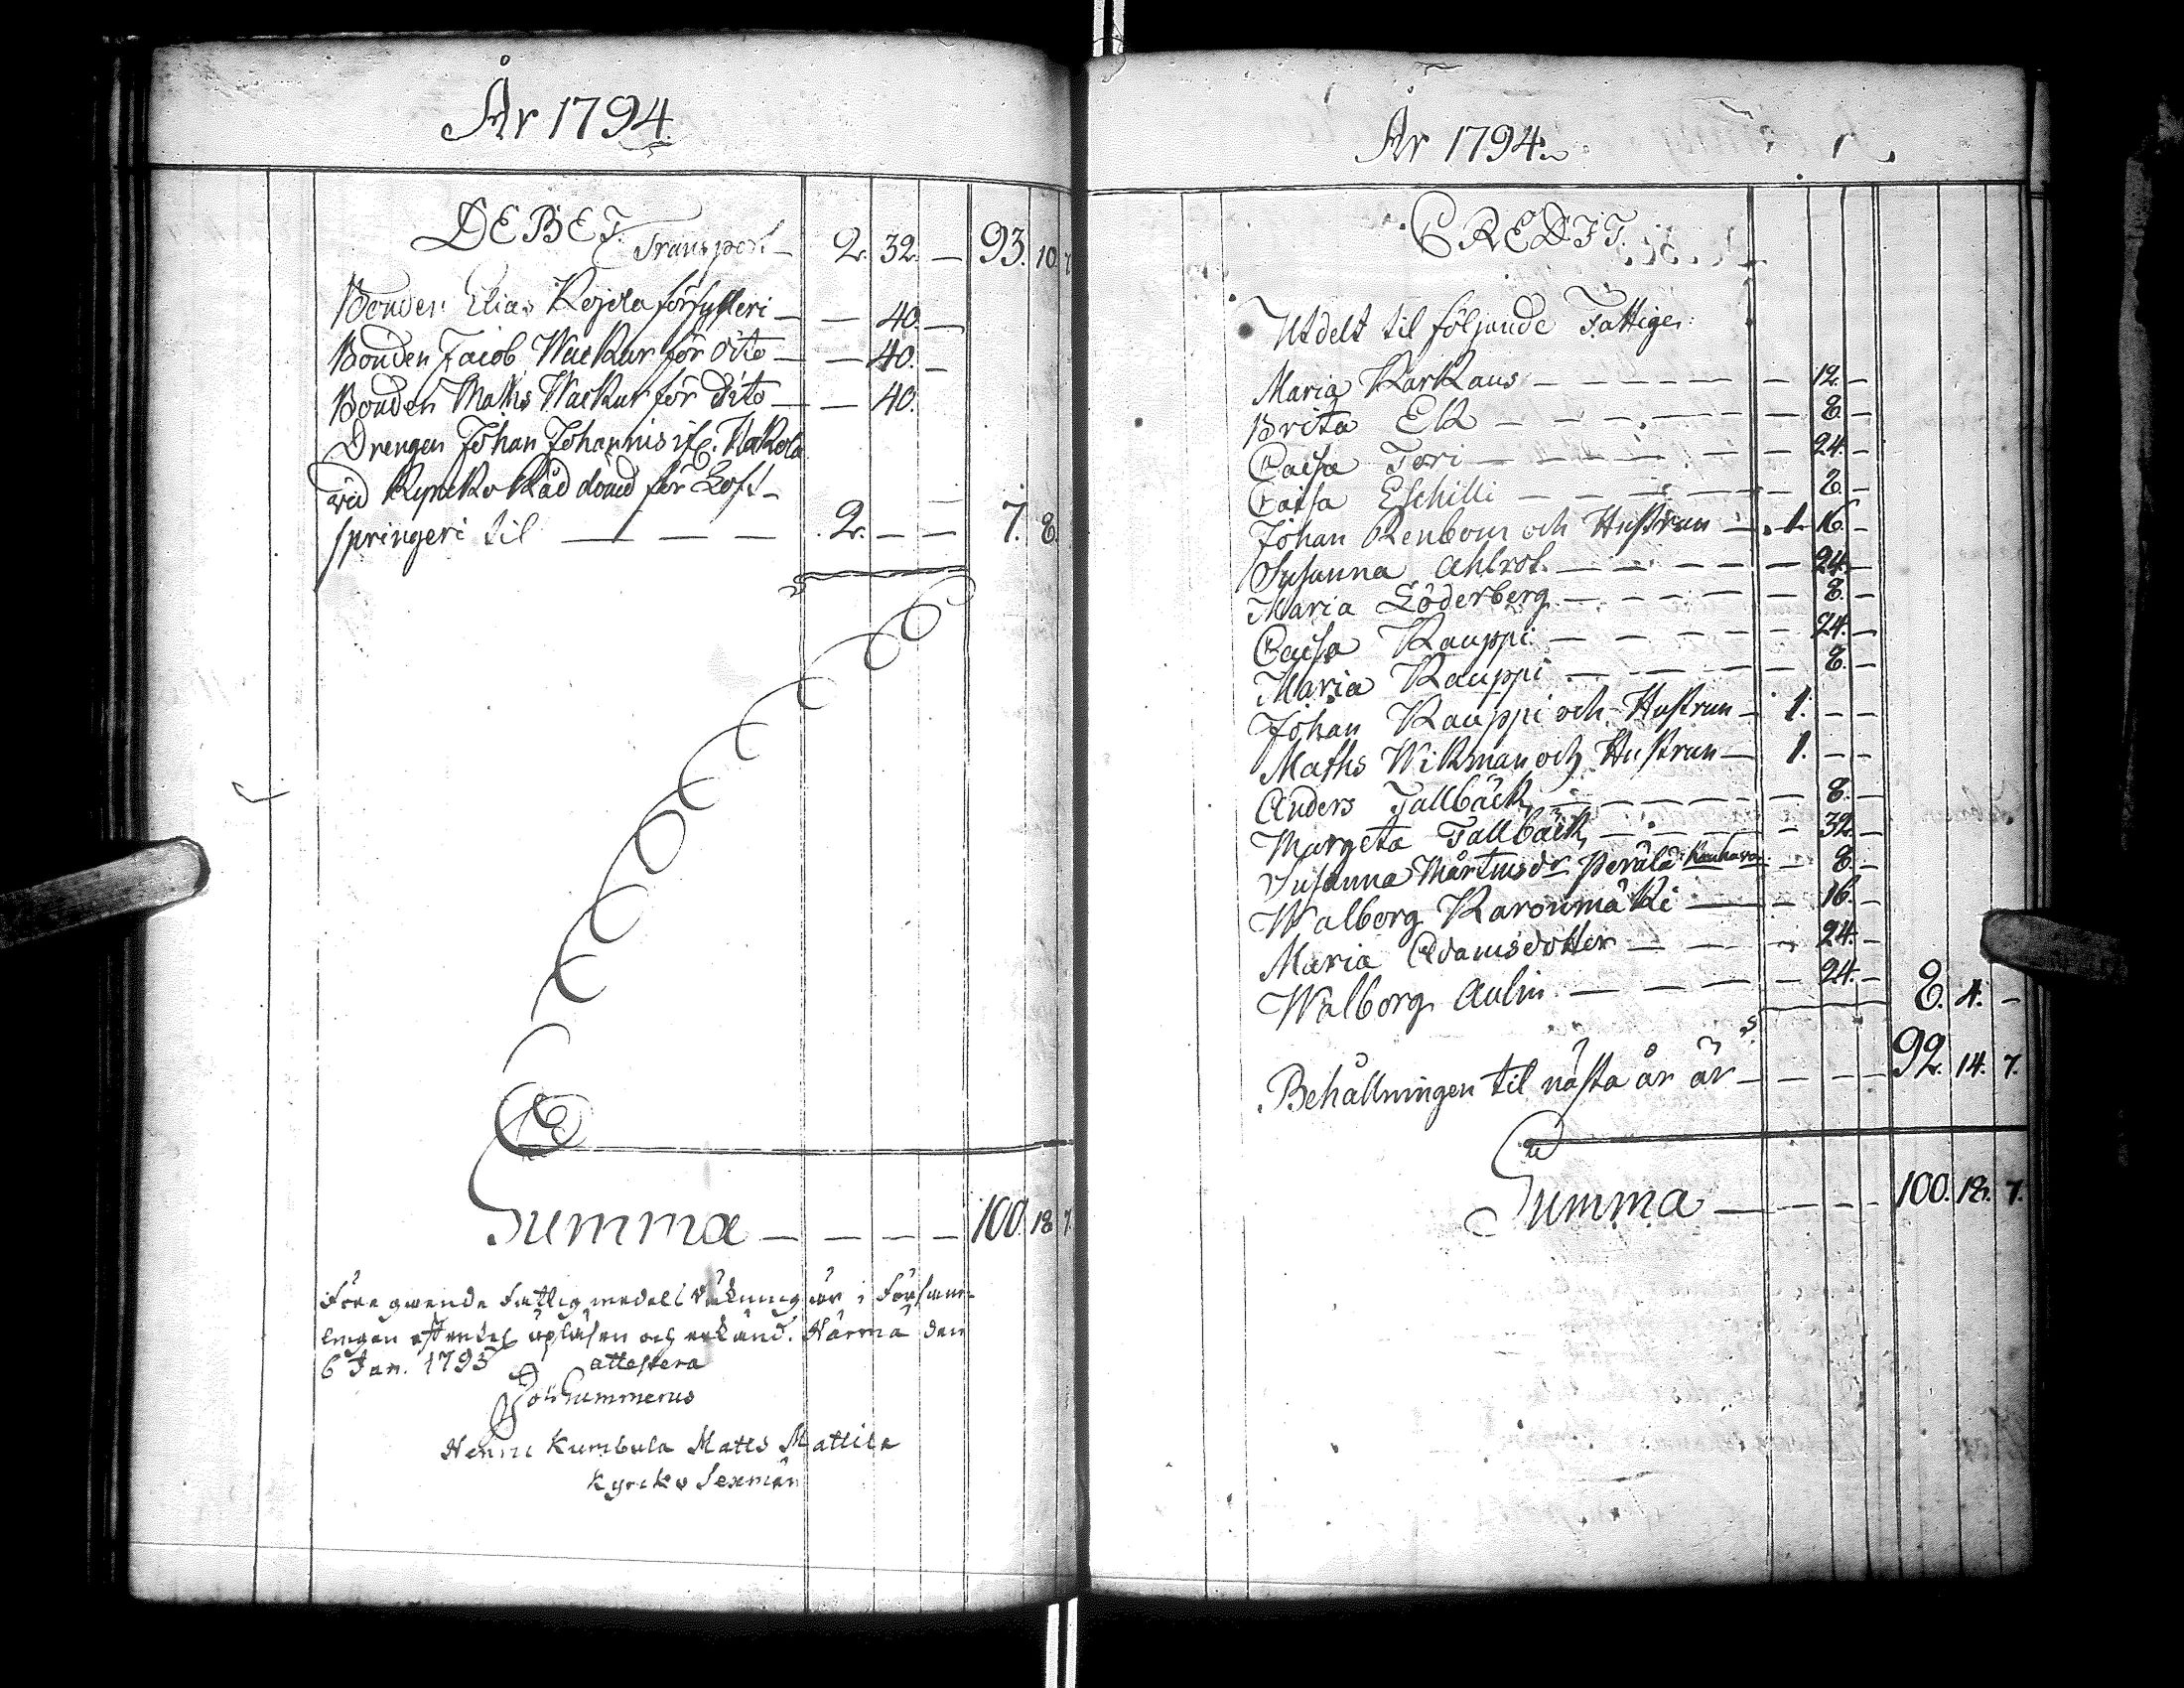 År 1794.
DEBET.
Transport — 2. 32. — 93. 10. 7
Bonden Elias Rojola för fylleri — — 40. —
Bonden Jacob Wackur för dito — — 40. —
Bonden Maths Wackur för dito — — 40.
Drengen Johan Johannis
vid Kyrko Råd dömd för Loft-
springeri til — — — 2. — — 7. 8.
Summa — — — — — 100. 18 7.
Föregående Fattig medels Räkning är i Försam-
lingen upläsen och erkänd. Härmä den
6 Jan. 1795 attestera
Summerus
Henric Kumbula Matts Mattila
Kyrko Sexmän
År 1794.
CREDIT.
Utdelt til följande Fattige:
Maria Karkaus — — — — — — — 12. —
Brita Ek — — — — — — 8. —
Caisa Tori — — — — — — 24. —
Caisa Eschilli — — — — — — 8. —
Johan Renbom och Hustrun — 1. 16. —
Susanna Ahlrot. — — — — — — 24. —
Maria Söderberg — — — — — — 8. —
Caisa Kauppi — — — — — 24. —
Maria Kauppi — — — — — 8. —
Johan Kauppi och Hustrun — 1. — —
Maths Wikman och Hustrun — 1. — —
Anders Tallbäck — — — — — — 8. —
Margeta Tallbäck — — — — — 32. —
Susanna Mårtensdr Perälä Kauhava — 8. —
Walborg Karonmäki — — 16. —
Maria Adamsdotter — — — 24. —
Walborg Aulin — — — — — 24. — 8. 4. —
Behållningen til nästa år är — — — — 92. 14. 7.
Summa — — — — 100. 18. 7.